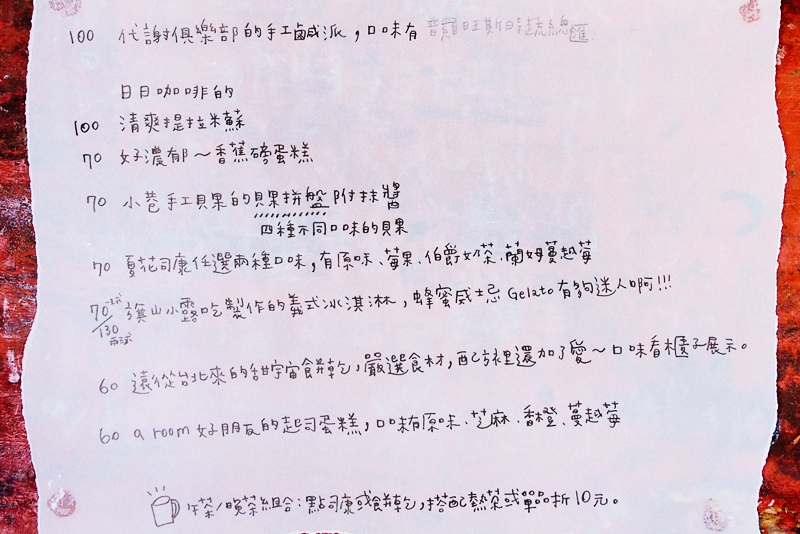 100 代謝俱樂部的手工鹹派，口味有 普羅旺斯時蔬總匯
日日咖啡的
100 清爽提拉米蘇
70 好濃郁～香蕉磅蛋糕
70 小巷手工貝果的貝果拼盤附抹醬
四種不同口味的貝果
70 夏花司康任選兩種口味，有原味、莓果、伯爵奶茶、蘭姆蔓越莓
70一球/130兩球 旗山小露吃製作的義式冰淇淋，蜂蜜威士忌Gelato有夠迷人啊!!!
60 遠從台北來的甜宇宙餅乾，嚴選食材，配方裡還加了愛～口味看櫃子展示。
60 a room 好朋友的起司蛋糕，口味有原味、芝麻、香橙、蔓越莓
午茶/晚茶組合：點司康或餅乾，搭配熱茶或單品折10元。